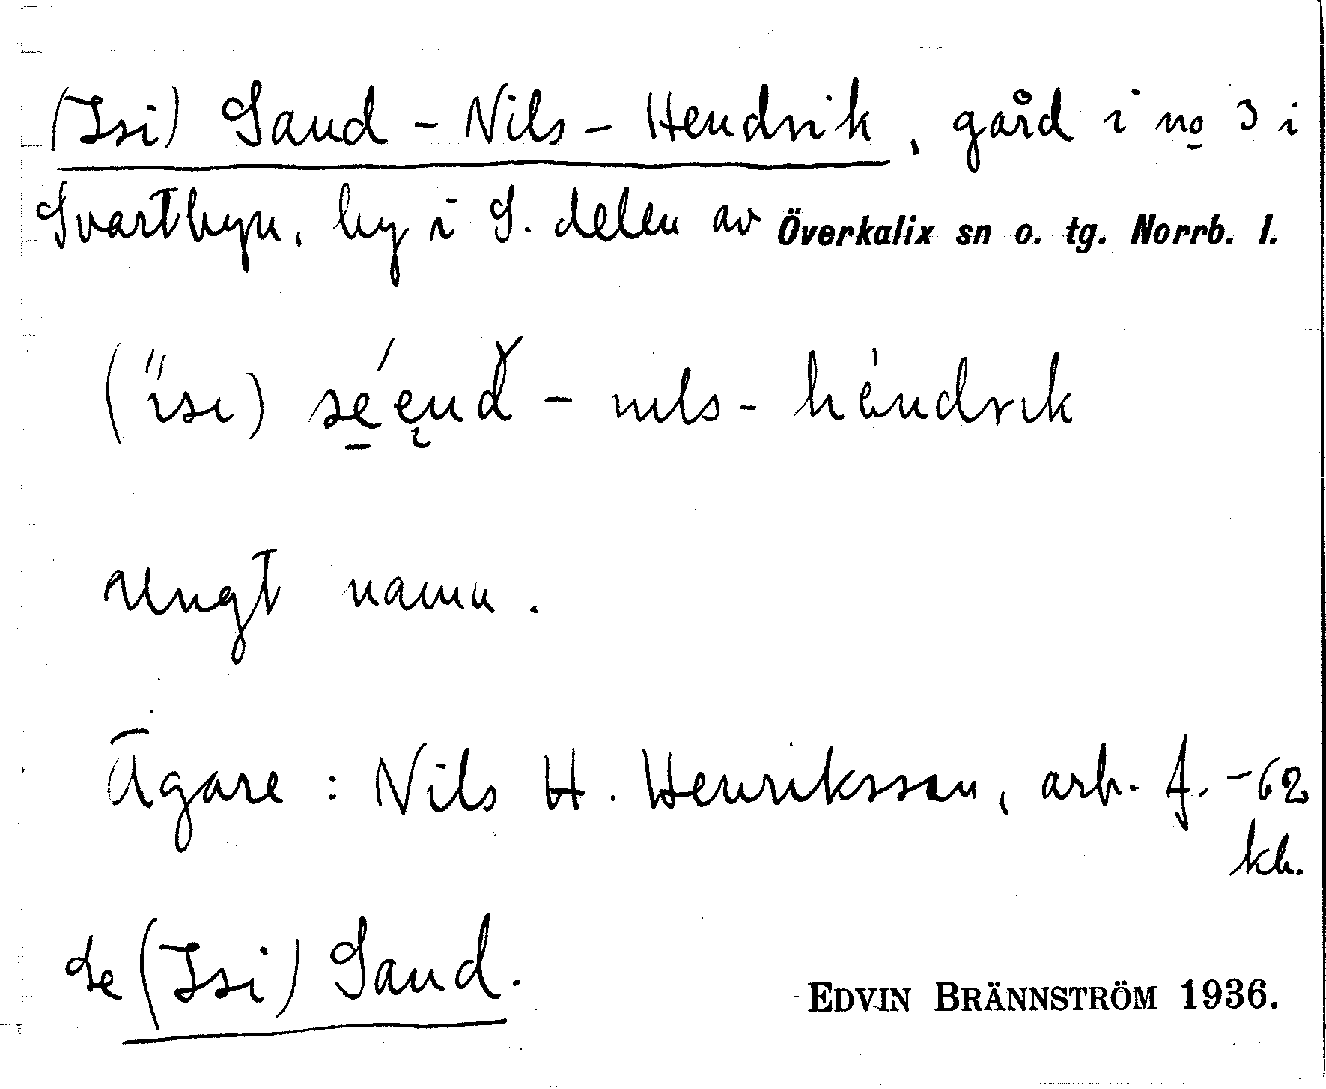 (Isi) Sand-Nils-Hendrik, gård i no 3 i
Svartbyn, by i S. delen av Överkalix sn o. tg. Norrb. l.
(ısı) - nıls-
Ungt namn.
Ägare: Nils H. Henriksson, arb. f. -62
kb.
Se (Isi) Sand.
EDVIN BRÄNNSTRÖM 1936.